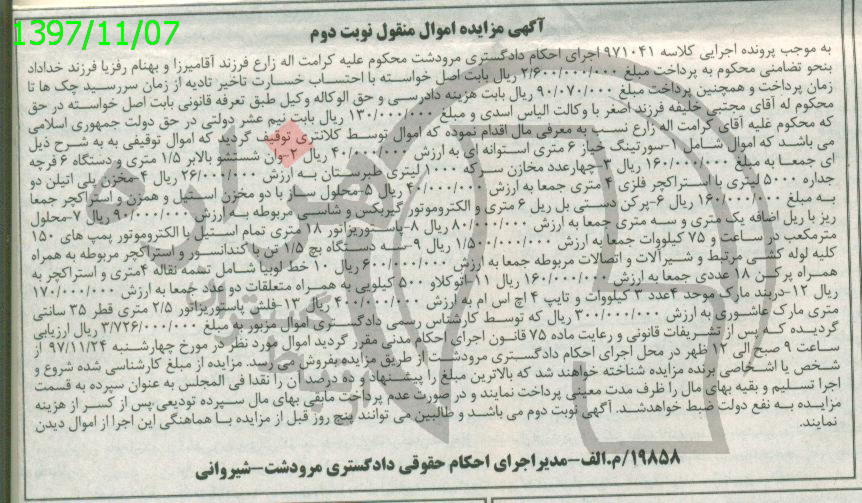 1397/11/07
آگهی مزایده اموال منقول نوبت دوم
به موجب پرونده اجرایی کلاسه ۹۷۱۰۴۱ اجرای احکام دادگستری مرودشت محکوم علیه کرامت اله زارع فرزند آقامیرزا و بهنام رفزیا فرزند خداداد
بنحو تضامنی محکوم به پرداخت مبلغ ۲/۶۰۰/۰۰۰/۰۰۰ ریال بابت اصل خواسته با احتساب خسارت تاخیر تادیه از زمان سررسید چک ها تا
زمان پرداخت و همچنین پرداخت مبلغ ۹۰/۰۷۰/۰۰۰ ریال بابت هزینه دادرسی و حق الوکاله وکیل طبق تعرفه قانونی بابت اصل خواسته در حق
محکوم له آقای مجتبی خلیفه فرزند اصغر با وکالت الیاس اسدی و مبلغ ۱۳۰/۰۰۰/۰۰۰ ریال بابت نیم عشر دولتی در حق دولت جمهوری اسلامی
که محکوم علیه آقای کرامت اله زارع نسبت به معرفی مال اقدام نموده که اموال توسط کلانتری توقیف گردید که اموال توقیفی به به شرح ذیل
می باشد که اموال شامل ۱-سورتینگ خیار ۶ متری استوانه ای به ارزش ۴۰/۰۰۰/۰۰۰ ریال ۲-وان شستشو بالابر ۱/۵ متری و دستگاه ۶ فرچه
ای جمعا به مبلغ ۱۶۰/۰۰۰/۰۰۰ ریال ۳-چهارعدد مخازن سرکه ۱۰۰۰ لیتری طبرستان به ارزش ۲۶/۰۰۰/۰۰۰ ریال ۴-مخزن پلی اتیلن دو
جداره ۵۰۰۰ لیتری با استراکچر فلزی ۴ متری جمعا به ارزش ۴۰/۰۰۰/۰۰۰ ریال ۵-محلول ساز با دو مخزن استیل و همزن و استراکچر جمعا
به مبلغ ۱۶۰/۰۰۰/۰۰۰ ریال ۶-پرکن دستی بل ریل ۶ متری و الکتروموتور گیربکس و شاسی مربوطه به ارزش ۹۰/۰۰۰/۰۰۰ ریال ۷-محلول
ریز با ریل اضافه یک متری و سه متری جمعا به ارزش ۸۰/۰۰۰/۰۰۰ ریال ۸-پاستوریزاتور ۱۸ متری تمام استیل با الکتروموتور پمپ های ۱۵۰
مترمکعب در ساعت و ۷۵ کیلووات جمعا به ارزش ۱/۵۰۰/۰۰۰/۰۰۰ ریال ۹-سه دستگاه بچ ۱/۵ تن با کندانسور و استراکچر مربوطه به همراه
کلیه لوله کشی مرتبط و شیرآلات و اتصالات مربوطه جمعا به ارزش ۶۰۰/۰۰۰/۰۰۰ ریال ۱۰ خط لوبیا شامل تسمه نقاله ۴متری و استراکچر به
همراه پرکن ۱۸ عددی جمعا به ارزش ۱۶۰/۰۰۰/۰۰۰ ریال ۱۱-اتوکلاو ۵۰۰ کیلویی به همراه متعلقات دو عدد جمعا به ارزش ۱۷۰/۰۰۰/۰۰۰
ریال ۱۲-دربند مارک موحد ۴عدد ۳ کیلووات و تایپ ۴ اچ اس ام به ارزش ۴۰۰/۰۰۰/۰۰۰ ریال ۱۳-فلش پاستوریزاتور ۲/۵ متری قطر ۳۵ سانتی
متری مارک عاشوری به ارزش ۳۰۰/۰۰۰/۰۰۰ ریال که توسط کارشناس رسمی دادگستری اموال مزبور به مبلغ ۳/۷۲۶/۰۰۰/۰۰۰ ریال ارزیابی
گردیده که پس از تشریفات قانونی و رعایت ماده ۷۵ قانون اجرای احکام مدنی مقرر گردید اموال مورد نظر در مورخ چهارشنبه ۹۷/۱۱/۲۴ از
ساعت ۹ صبح الی ۱۲ ظهر در محل اجرای احکام دادگستری مرودشت از طریق مزایده بفروش می رسد. مزایده از مبلغ کارشناسی شده شروع و
شخص یا اشخاصی برنده مزایده شناخته خواهند شد که بالاترین مبلغ را پیشنهاد و ده درصد آن را نقدا فی المجلس به عنوان سپرده به قسمت
اجرا تسلیم و بقیه بهای مال را ظرف مدت معینی پرداخت نمایند و در صورت عدم پرداخت مابقی بهای مال سپرده تودیعی پس از کسر از هزینه
مزایده به نفع دولت ضبط خواهدشد. آگهی نوبت دوم می باشد و طالبین می توانند پنج روز قبل از مزایده با هماهنگی این اجرا از اموال دیدن
نمایند.
۱۹۸۵۸/م.الف-مدیراجرای احکام حقوقی دادگستری مرودشت-شیروانی